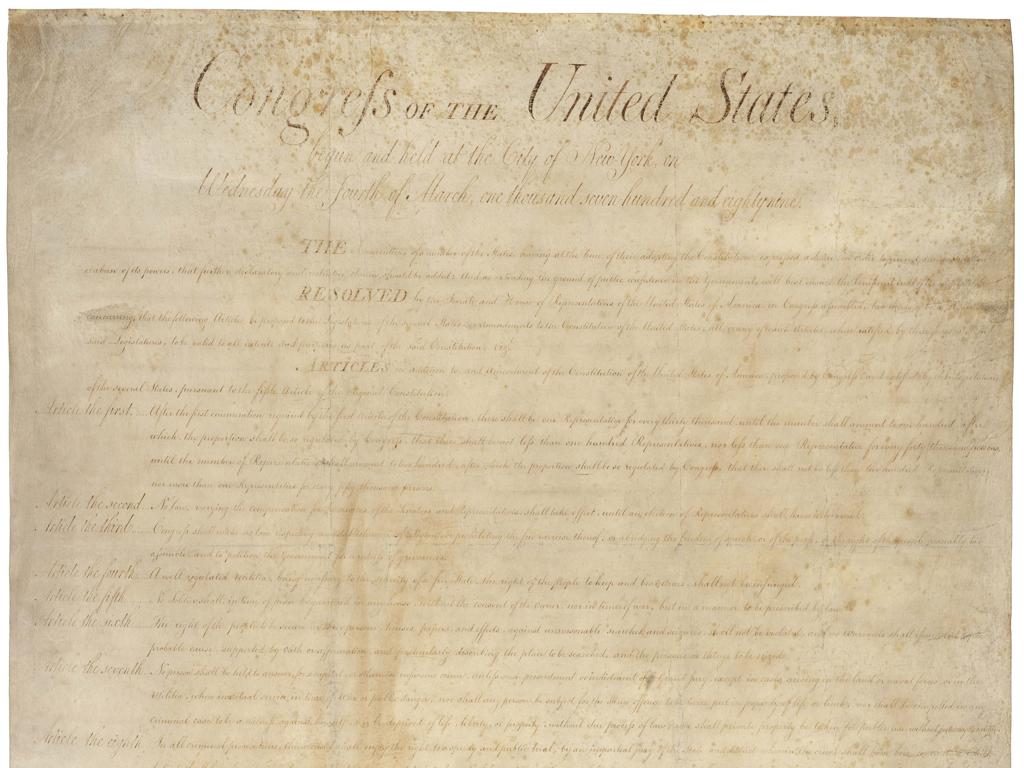 Congress OF THE United States,
begun and held at the City of New York, on
Wednesday the fourth of March, one thousand seven hundred and eighty nine.
THE Conventions of a number of the States, having at the time of their adopting the Constitution, expressed a desire, in order to prevent
abuse of its powers, that further declaratory and restrictive clauses should be added: And as extending the ground of public confidence in the Government, will best ensure the beneficent ends of its
RESOLVED by the Senate and House of Representatives of the United States of America, in Congress assembled, two thirds of both Houses
concurring, that the following Articles be proposed to the Legislatures of the several States, as amendments to the Constitution of the United States, all, or any of which Articles, when ratified by three fourths of the
said Legislatures, to be valid to all intents and purposes, as part of the said Constitution; vizt.
ARTICLES in addition to, and Amendment of the Constitution of the United States of America, proposed by Congress, and ratified by the Legislatures
of the several States, pursuant to the fifth Article of the original Constitution.
Article the first... After the first enumeration required by the first Article of the Constitution, there shall be one Representative for every thirty thousand, until the number shall amount to one hundred, after
which, the proportion shall be so regulated by Congress, that there shall be not less than one hundred Representatives, nor less than one Representative for every forty thousand persons,
until the number of Representatives shall amount to two hundred, after which the proportion shall be so regulated by Congress, that there shall not be less than two hundred Representatives,
nor more than one Representative for every fifty thousand persons.
Article the second... No law, varying the compensation for the services of the Senators and Representatives, shall take effect, until an election of Representatives shall have intervened.
Article the third... Congress shall make no law respecting an establishment of religion, or prohibiting the free exercise thereof; or abridging the freedom of speech, or of the press; or the right of the people peaceably to
assemble, and to petition the Government for a redress of grievances.
Article the fourth... A well regulated Militia, being necessary to the security of a free State, the right of the people to keep and bear Arms, shall not be infringed.
Article the fifth... No Soldier shall, in time of peace be quartered in any house, without the consent of the owner, nor in time of war, but in a manner to be prescribed by law.
Article the sixth... The right of the people to be secure in their persons, houses, papers, and effects, against unreasonable searches and seizures, shall not be violated, and no Warrants shall issue, but upon
probable cause, supported by oath or affirmation, and particularly describing the place to be searched, and the persons or things to be seized.
Article the seventh... No person shall be held to answer for a capital, or otherwise infamous crime, unless on a presentment or indictment of a Grand jury, except in cases arising in the land or naval forces, or in the
Militia, when in actual service, in time of War or public danger; nor shall any person be subject for the same offence to be twice put in jeopardy of life or limb; nor shall be compelled in any
criminal case to be a witness against himself, nor be deprived of life, liberty, or property, without due process of law; nor shall private property be taken for public use, without just
Article the eighth... In all criminal prosecutions, the accused shall enjoy the right to a speedy and public trial, by an impartial jury of the State and district wherein the crime shall have been